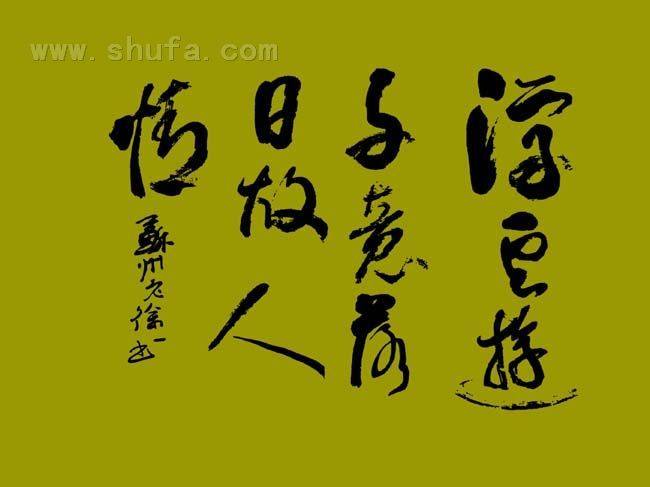 www.shufa.com
浮云游
子意落
日故人
情
苏州老徐书